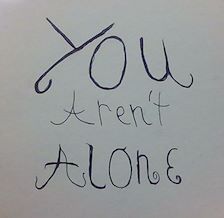 You
Aren't
ALONE